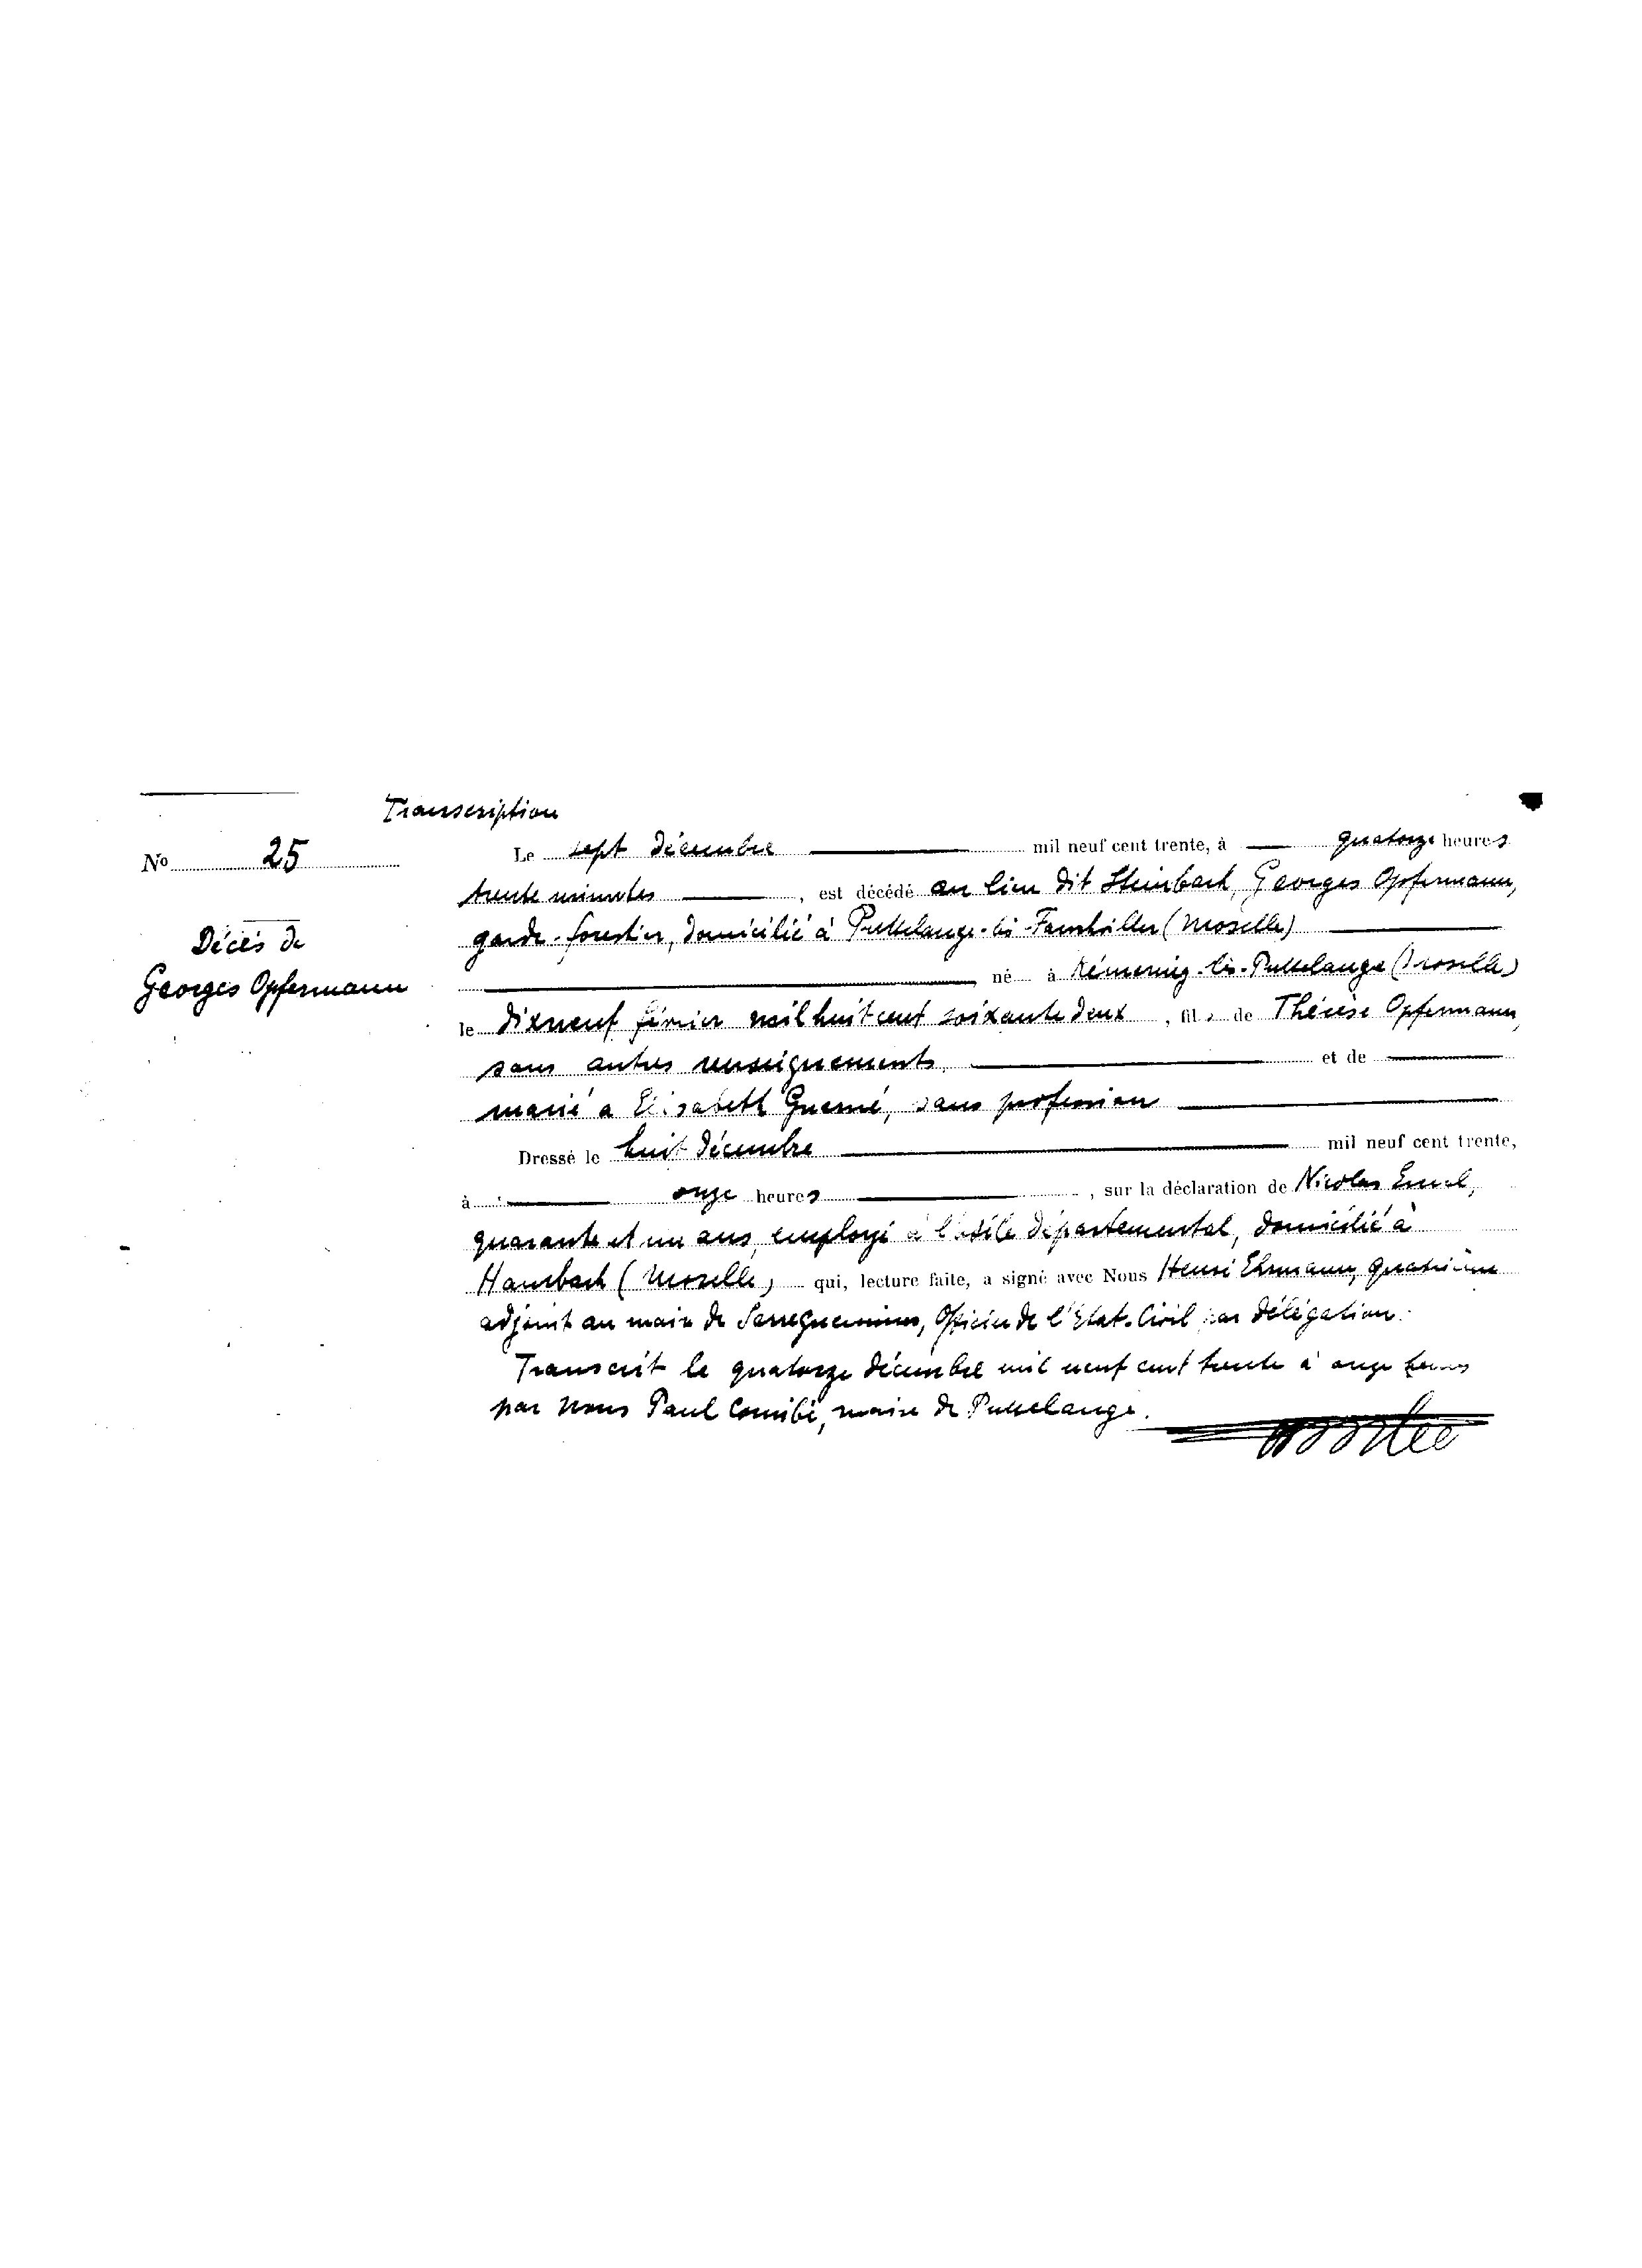 Transcription
No 25
Décès de
Georges Opfermann
Le sept décembre mil neuf cent trente, à quatorze heures
trente minutes, est décédé au lieu dit Steinbach, Georges Opfermann,
garde-forestier, domicilié à Puttelange-lès-Farschviller (Moselle)
né à Rémering-lès-Puttelange (Moselle)
le dixneuf février mil huit cent soixante deux, fils de Thérèse Opfermann,
sans autres renseignements, et de
marié à Elisabeth Guerné, sans profession
Dressé le huit décembre mil neuf cent trente,
à onze heures, sur la déclaration de Nicolas
quarante et un ans, employé à l'asile départemental, domicilié à
Hambach (Moselle) qui, lecture faite, a signé avec Nous Henri Ehrmann, quatrième
adjoint au maire de Sarreguemines, Officier de l'Etat-Civil par délégation.
Transcrit le quatorze décembre mil neuf cent trente à onze heures
par Nous Paul, maire de Puttelange.